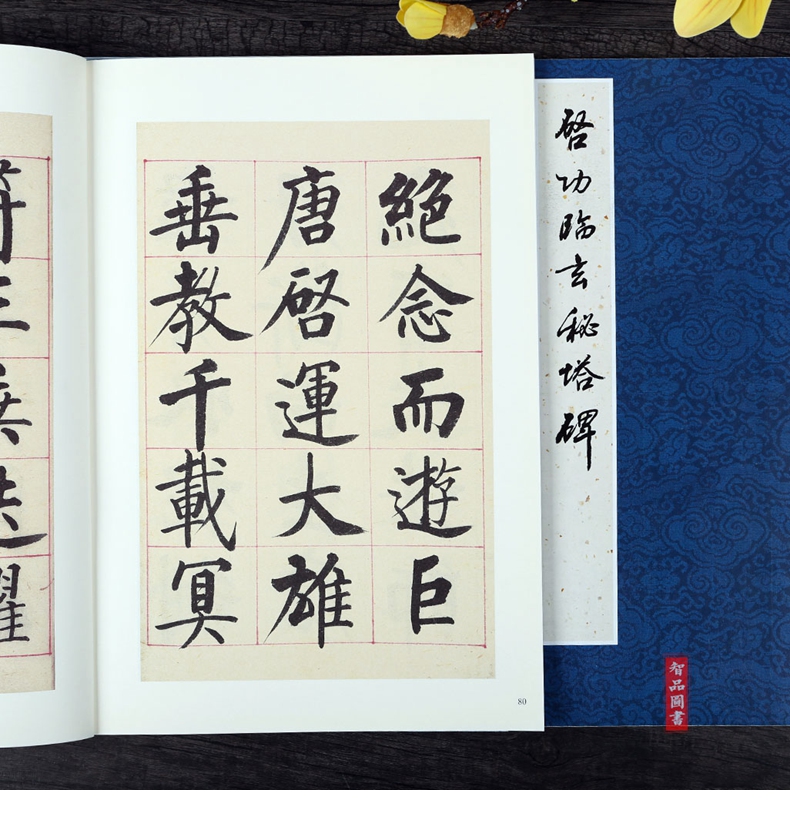 絕念而遊巨
唐啓運大雄
垂教千載冥
80
啓功臨玄秘塔碑
智品圖書